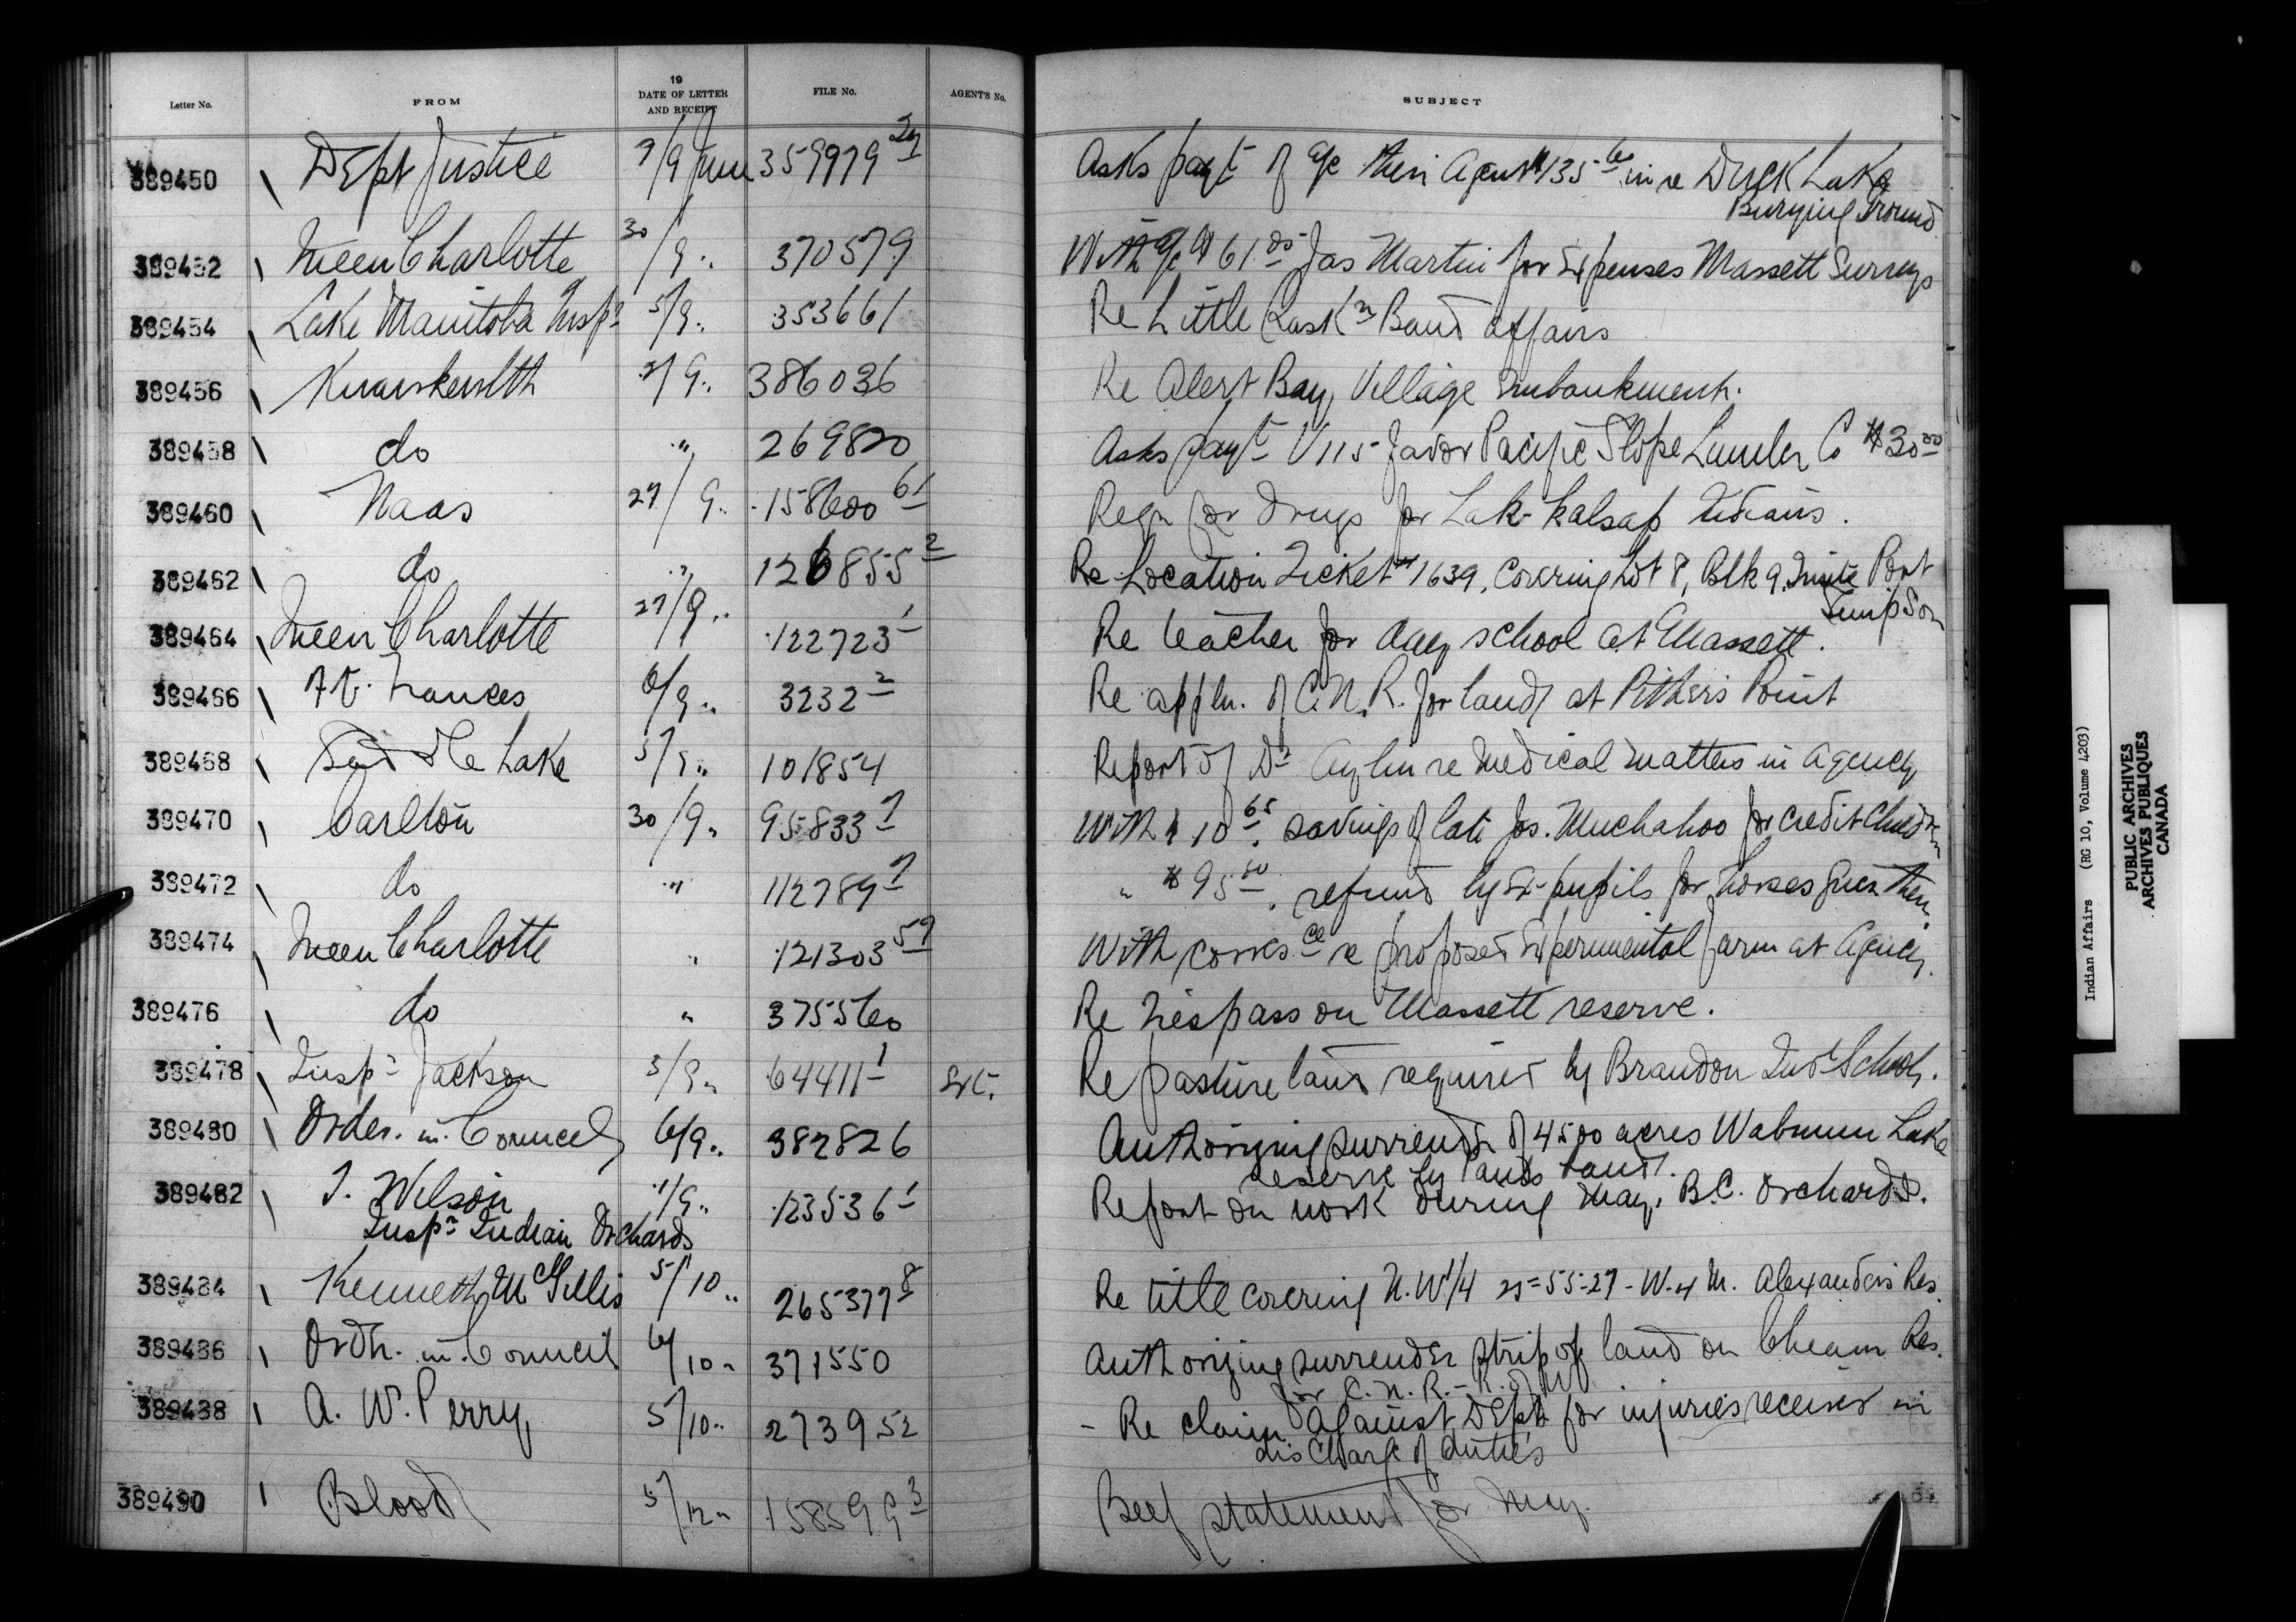 Letter No. FROM 19 DATE OF LETTER AND RECEIPT FILE No. AGENT'S No. SUBJECT
389450 Dept Justice 7/9 June 359979 Asks payt of a/c their Agent $135 60 in re Duck Lake
Burying Ground
389452 Queen Charlotte 30/9 " 370579 With a/c $61 05 Jas Martin for Expenses Massett Surveys
389454 Lake Manitoba Insp r 5/9 " 353661 Re Little Sask n Band affairs
389456 Kwawkewlth 9 " 386036 Re Alert Bay, Village Embankment.
389458 do " 269820 Asks payt V115 favor Pacific Slope Lumber Co $30 00
389460 Naas 27/9 " 158600 61 Reqn for drugs for Lak-kalsap Indians.
389462 do " 126855 2 Re Location Ticket 1639, Covering Lot 8, Blk 9, Port
Simpson
389464 Queen Charlotte 27/9 " 122723 1 Re teacher for day school at Massett.
389466 Ft. Frances 6/9 " 3232 2 Re appln. of C.N.R. for land at Pither's Point
389468 Saddle Lake 5/9 " 101854 Report of Dr Aylen re Medical matters in Agency
389470 Carlton 30/9 " 95833 7 With $10 65, savings of late Jos. Muchahoo for credit Children
389472 do " 112789 7 " $95 50, refund by Ex-pupils for horses given them
389474 Queen Charlotte " 121303 59 With corres ce re proposed Experimental farm at Agency.
389476 do " 375560 Re trespass on Massett reserve.
389478 Insp r Jackson 3/9 " 64411 1 Re pasture land required by Brandon Ind l School.
389480 Order in Council 6/9 " 382826 Authorizing surrender of 4500 acres Wabmun Lake
reserve by Pauls band.
389482 T. Wilson 1/9 " 123536 1 Report on work during May, B.C. Orchards.
Insp r Indian Orchards
389484 Kenneth McGillis 5/10 " 265377 8 Re title covering N.W 1/4 25-55-27-W.4 M. Alexanders Res.
389486 Ordr. in Council 6/10 " 371550 Authorizing surrender strip of land on Cheam Res.
for C.N.R.-R. of W
389488 A. W. Perry 5/10 " 273952 - Re claim against Dept for injuries received in
discharge of duties
389490 Blood 5/12 " 158599 3 Beef statement for May.
Indian Affairs (RG 10, Volume 4203)
PUBLIC ARCHIVES
ARCHIVES PUBLIQUES
CANADA